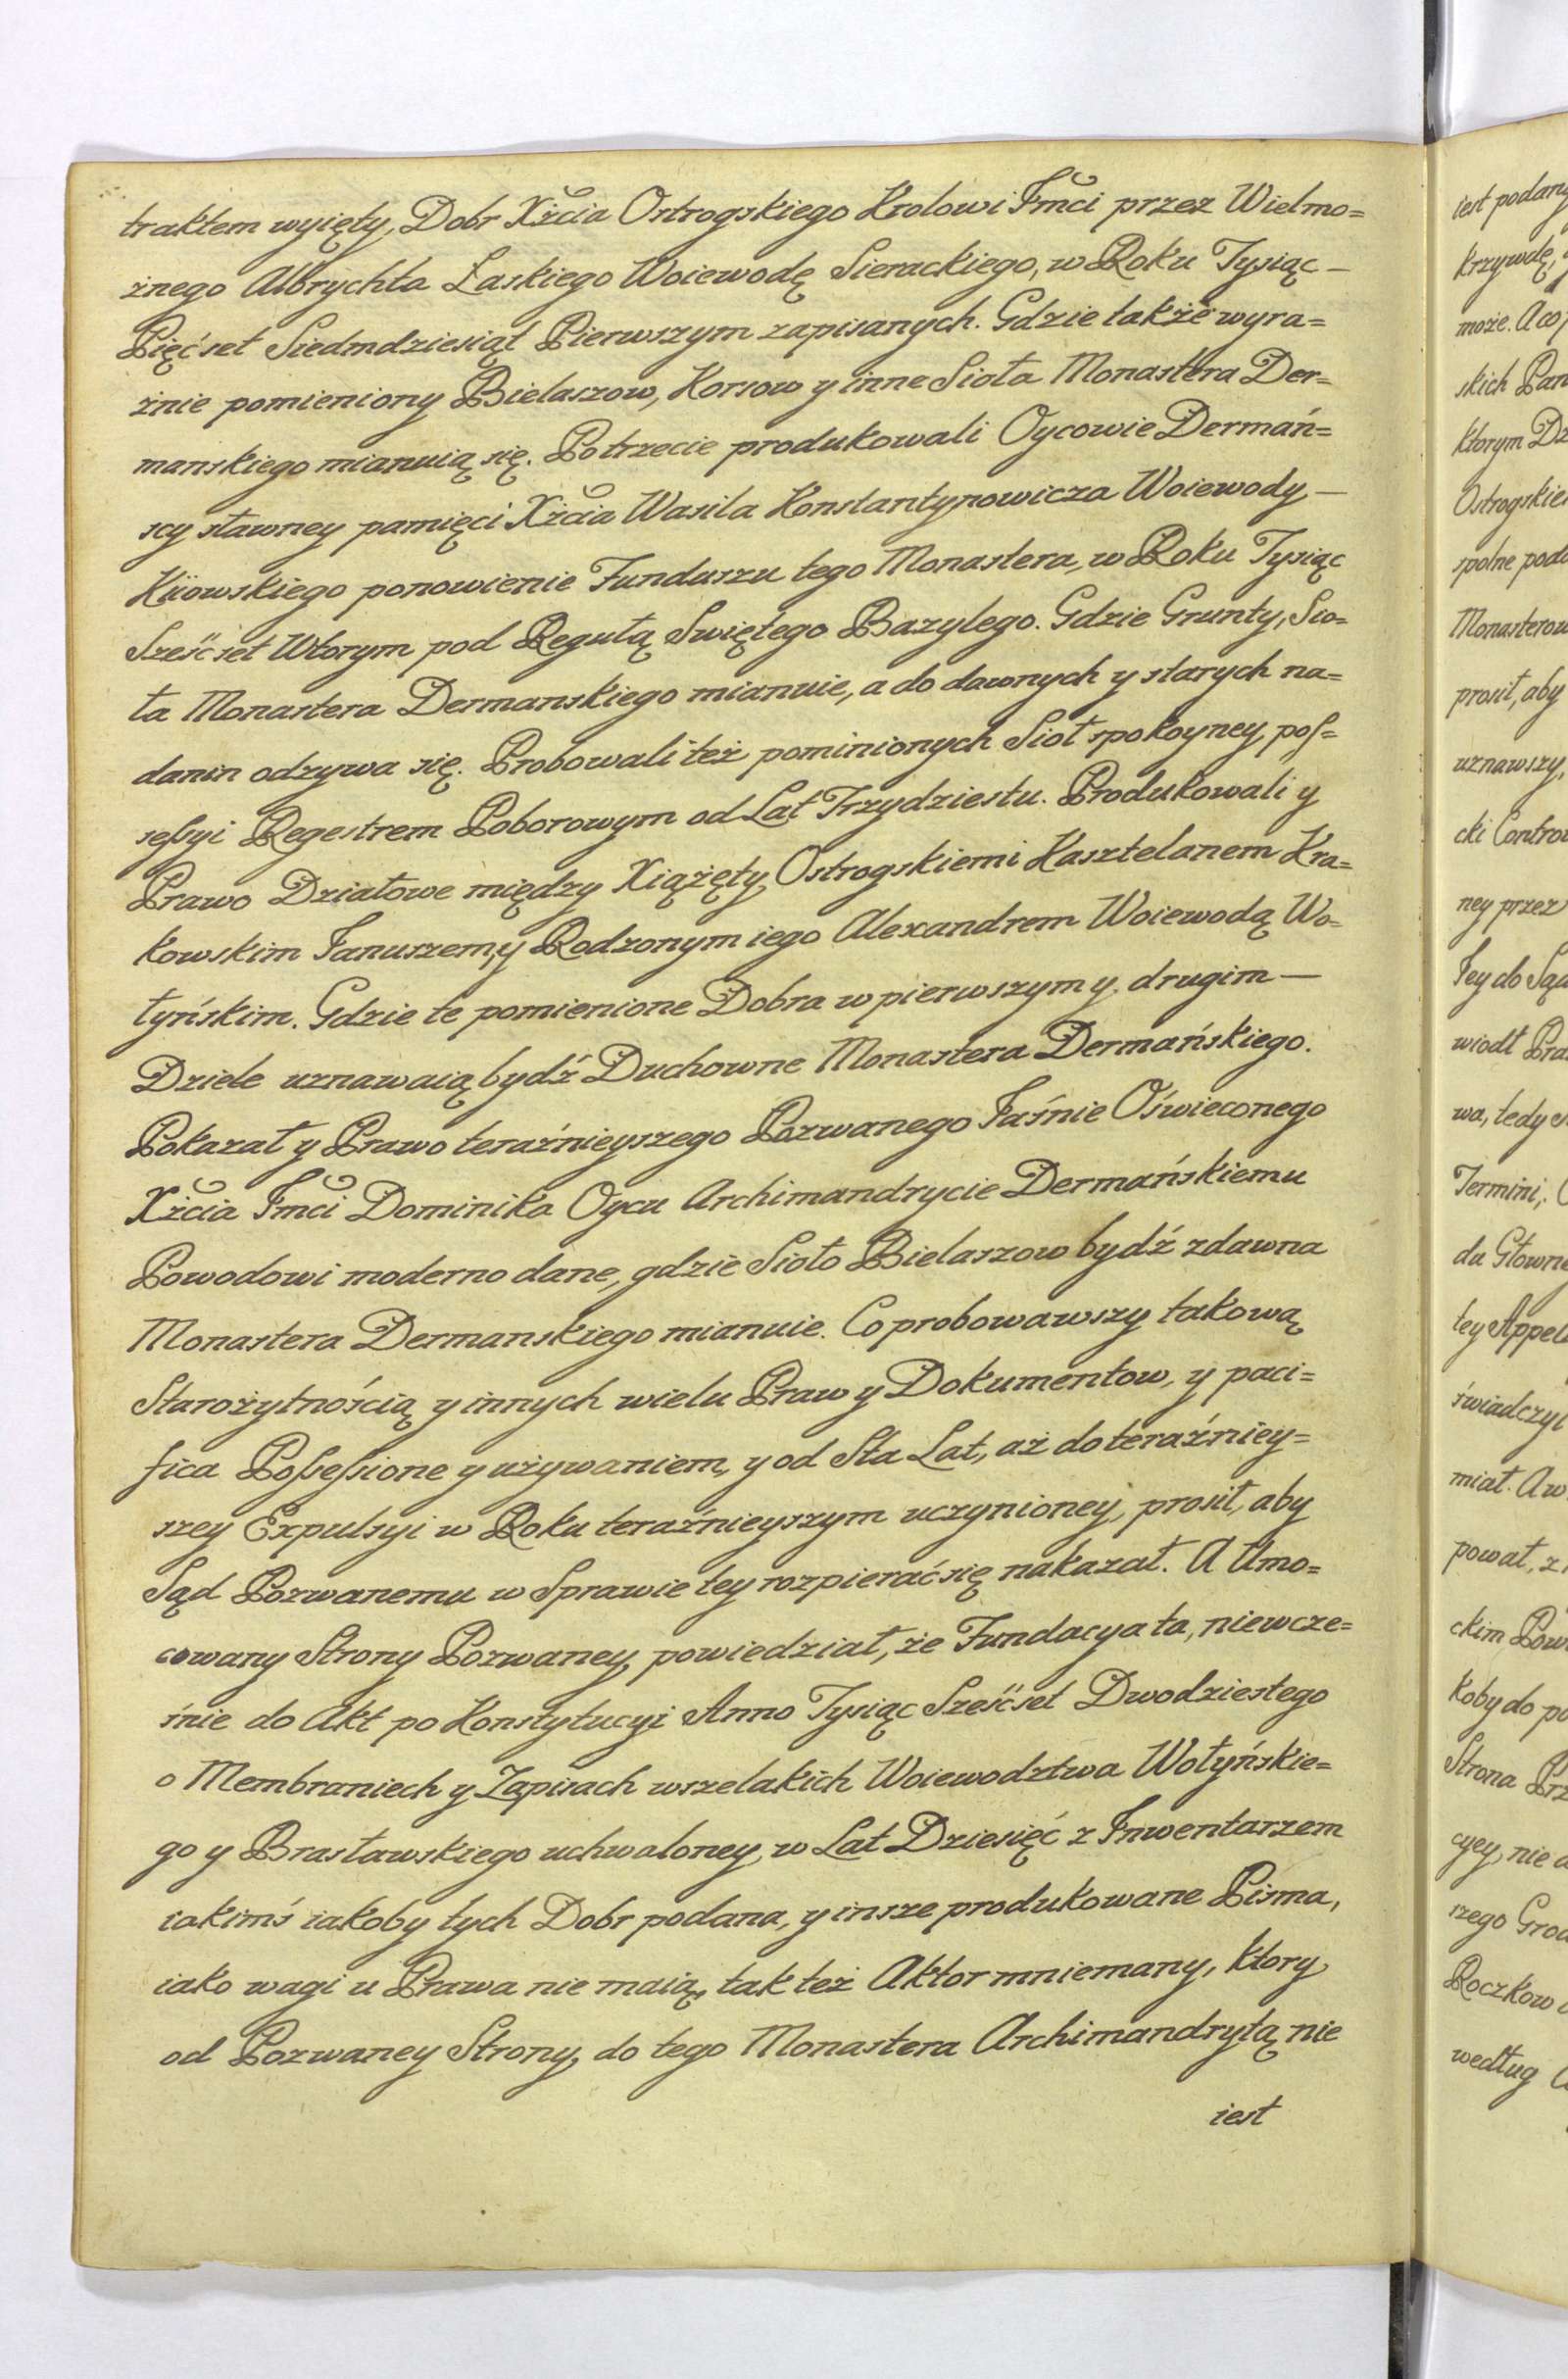 traktem wyięty, Dobr Xżcia Ostrogskiego Krolowi Jmci przez Wielmo=
żnego Albrychta Łaskiego Woiewodę Sierackiego, w Roku Tysiąc —
Pięćset Siedmdziesiąt Pierwszym zapisanych. Gdzie także wyra=
źnie pomieniony Bielaszow, Korsow y inne Sioła Monastera Der=
manskiego mianuią się. Potrzecie produkowali Oycowie Dermań=
scy sławney pamięci Xżcia Wasila Konstantynowicza Woiewody —
Kiiowskiego ponowienie Funduszu tego Monastera, w Roku Tysiąc
Sześćset Wtorym pod Regułą Swiętego Bazylego. Gdzie Grunty, Sio=
ła Monastera Dermanskiego mianuie, a do dawnych y starych na=
danin odzywa się. Probowali też pominionych Sioł spokoyney pos=
seßyi Regestrem Poborowym od Lat Trzydziestu. Produkowali y
Prawo Działowe między Xiążęty Ostrogskiemi Kasztelanem Kra=
kowskim Januszem, y Rodzonym iego Alexandrem Woiewodą Wo=
łyńskim. Gdzie te pomienione Dobra w pierwszym y drugim —
Dziele uznawaią bydź Duchowne Monastera Dermańskiego.
Pokazał y Prawo teraźnieyszego Pozwanego Jaśnie Oświeconego
Xżcia Jmci Dominika Oycu Archimandrycie Dermańskiemu
Powodowi moderno dane, gdzie Sioło Bielaszow bydź zdawna
Monastera Dermanskiego mianuie. Co probowawszy takową
Starożytnością y innych wielu Praw y Dokumentow, y paci=
fica Poßeßione y używaniem, y od Sta Lat, aż do teraźniey=
szey Expulsyi w Roku teraźnieyszym uczynioney, prosił, aby
Sąd Pozwanemu w Sprawie tey rozpierać się nakazał. A Umo=
cowany Strony Pozwaney, powiedział, że Fundacya ta, niewcze=
śnie do Akt po Konstytucyi Anno Tysiąc Sześćset Dwodziestego
o Membraniech y Zapisach wszelakich Woiewodztwa Wołyńskie=
go y Brasławskiego uchwaloney, w Lat Dziesięć z Inwentarzem
iakimś iakoby tych Dobr podana, y insze produkowane Pisma,
iako wagi u Prawa nie maią, tak też Aktor mniemany, ktory
od Pozwaney Strony, do tego Monastera Archimandrytą nie
iest
iest podany
krzywdę,
może. A co
skich Pan
ktorym Dz
Ostrogskie
spolne pod
Monasterow
prosił, aby
uznawszy,
cki Contro
ney przez
Jey do Są
wiodł Pra
wa, tedy
Termini,
du Głowne
tey Appel
świadczył
miał. A w
pował, z
ckim Pow
koby do po
Strona Prz
cyey, nie
szego Gro
Roczkow
według